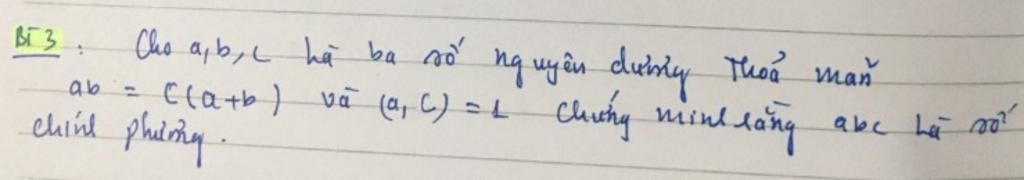 Bì 3 : Cho a,b,c là ba số nguyên dương Thoả mãn
ab = c(a+b) và (a,c)=1 Chứng minh rằng abc là số
chính phương.